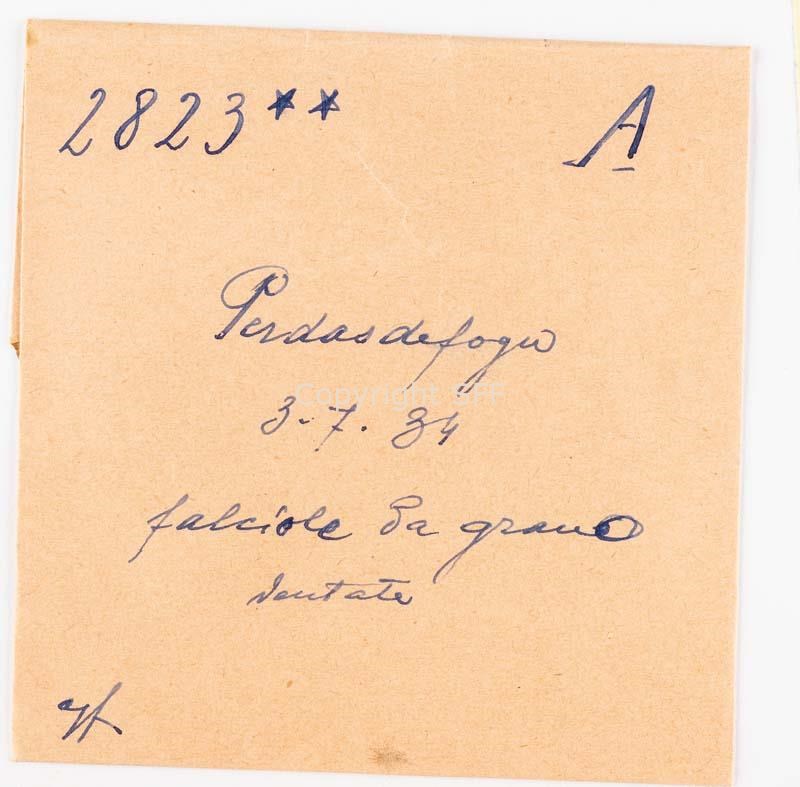 2823** A
Perdasdefogu
Copyright SFF
3-7.34
falciole da grano
dentate